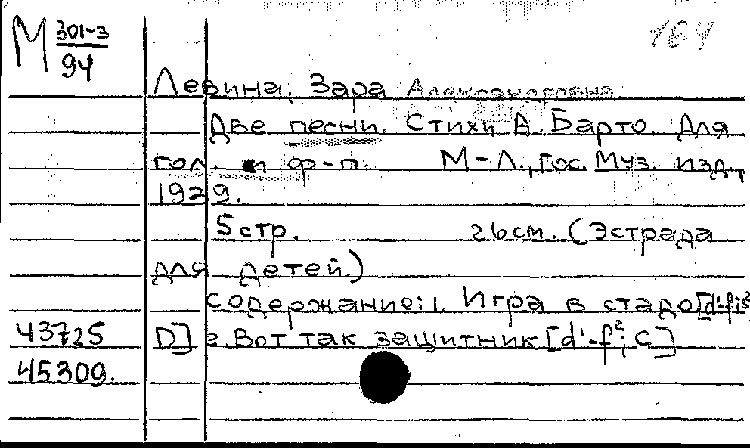 М 301-3
94
164
Левина, Зара Александровна
Две песни. Стихи А. Барто. Для
гол. и ф-п. М-Л., Гос. Муз. изд.,
1929.
5 стр. 26 см. (Эстрада
для детей.)
Содержание: 1. Игра в стадо [d'-fis²
43725 D] 2. Вот так защитник [d'-f²; C]
45309.